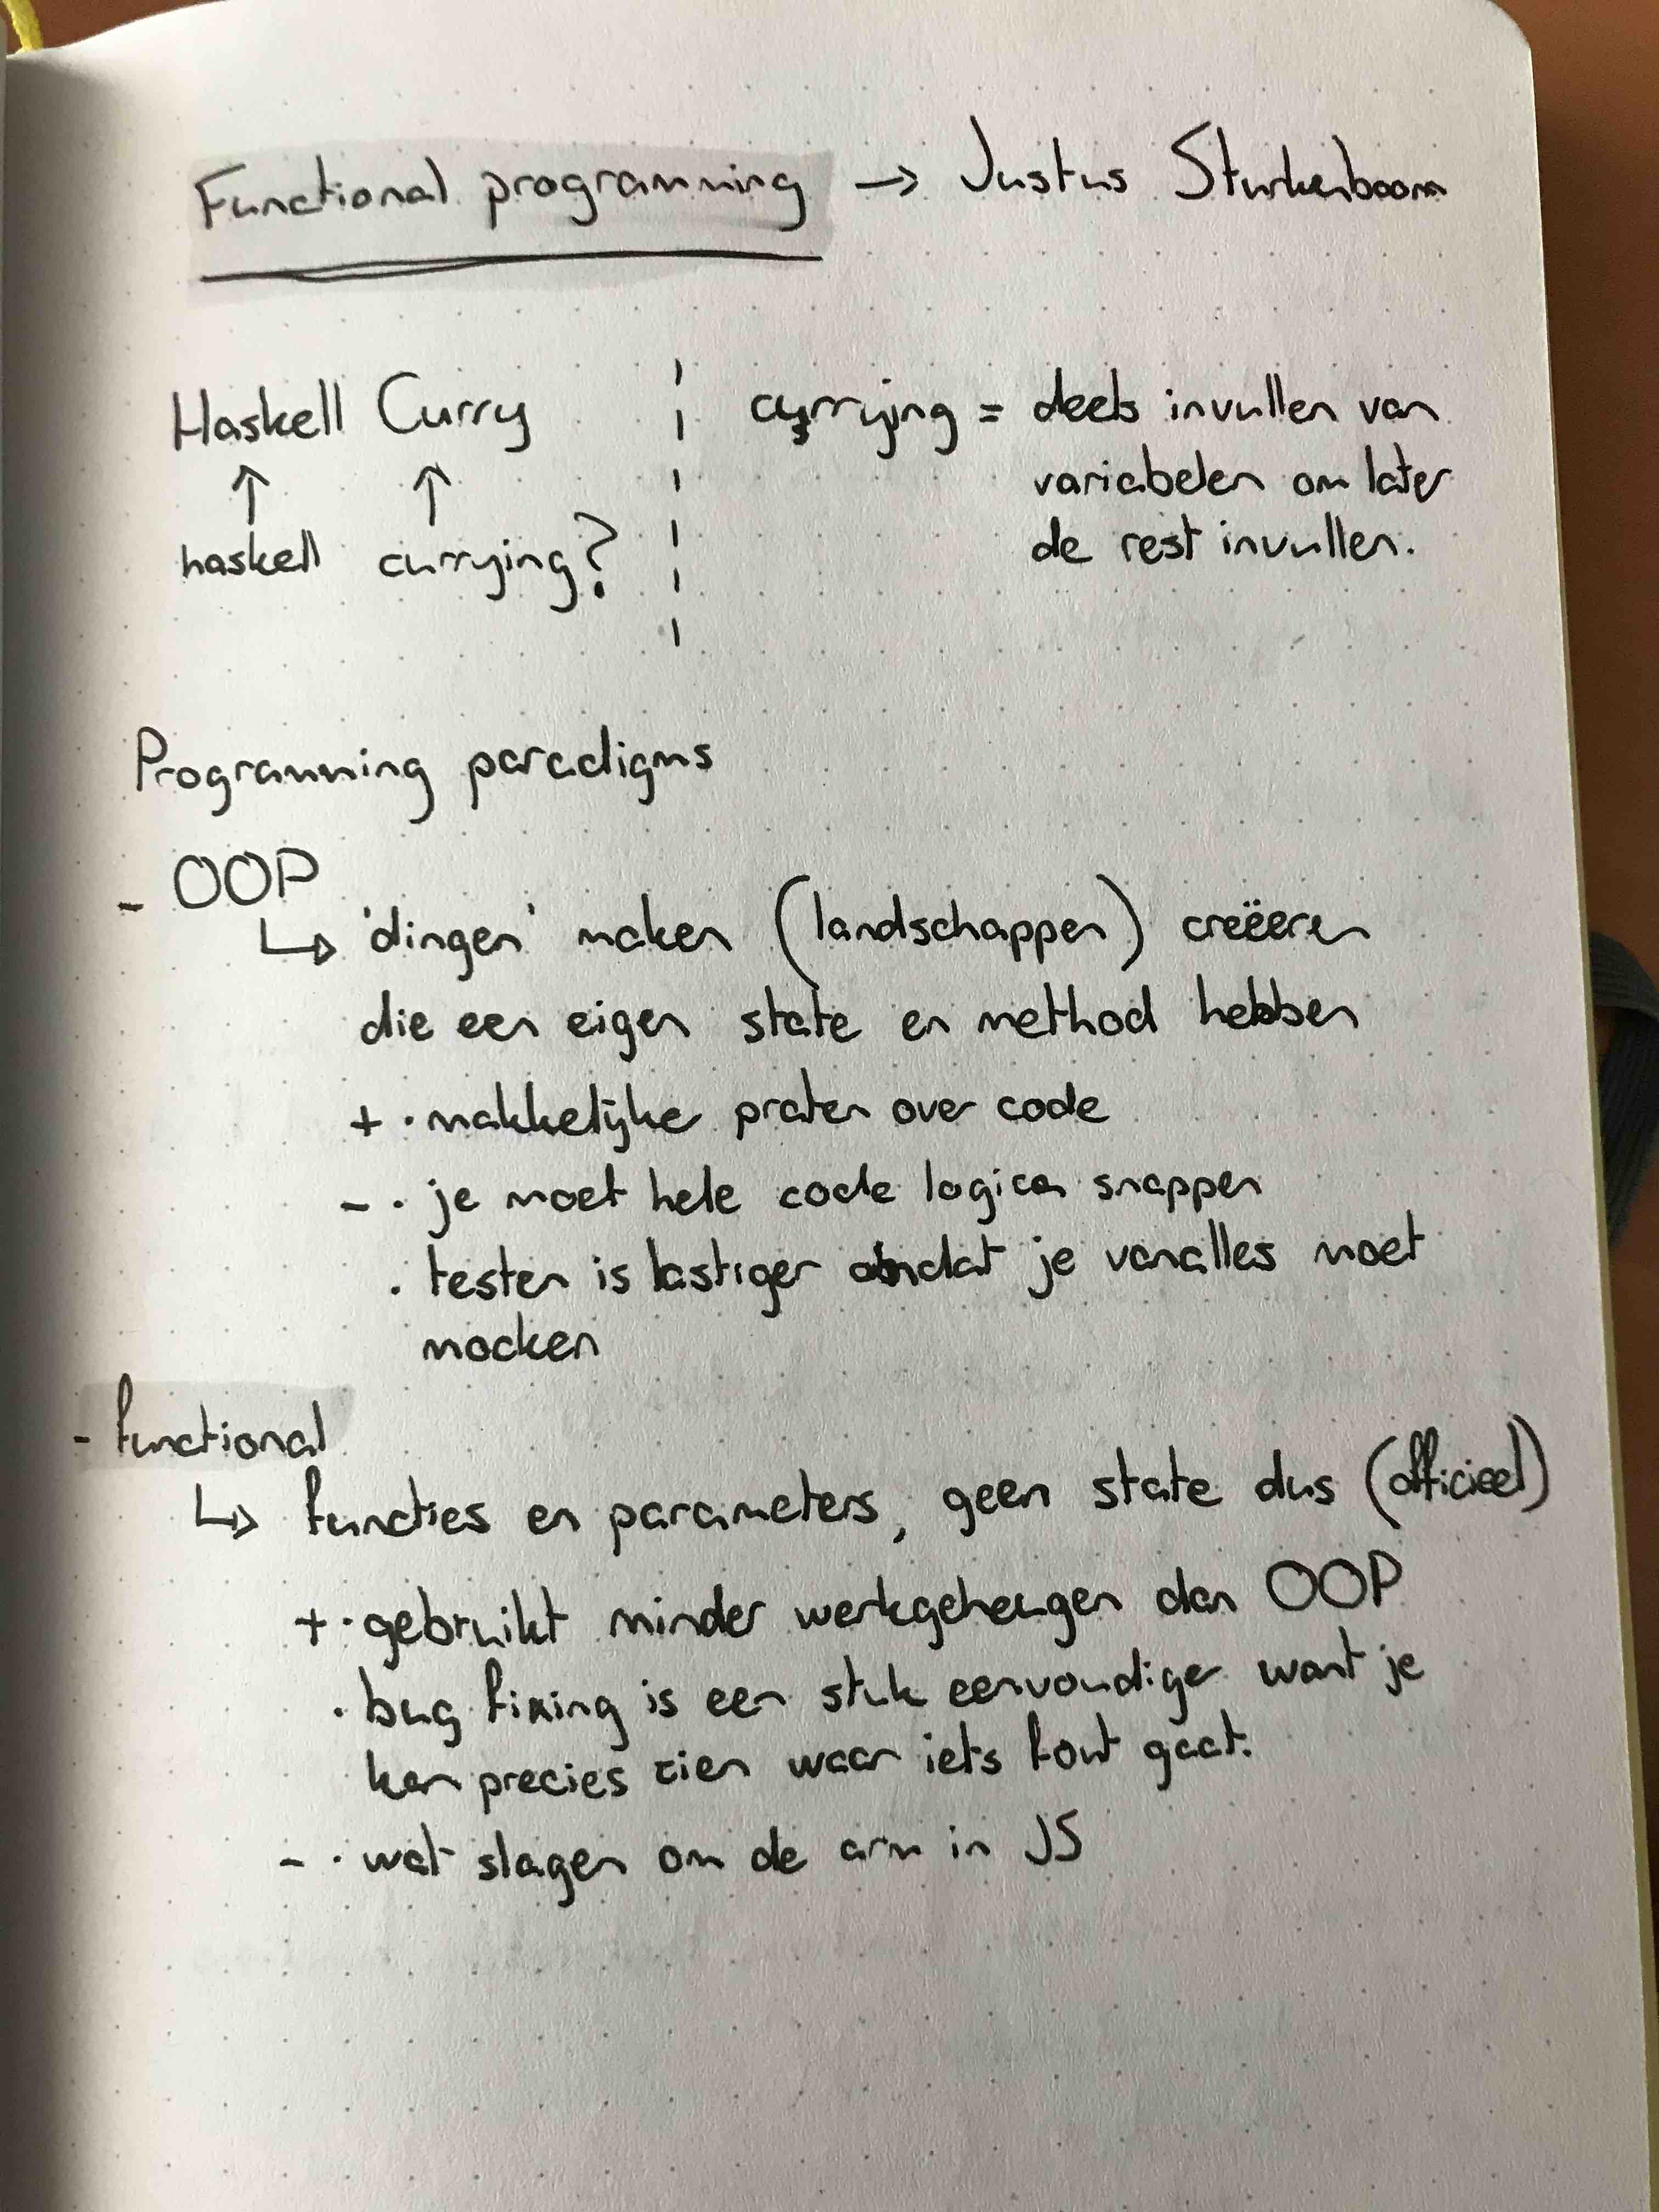 Functional programming → Justus Sturkenboom
Haskell Curry
↑ ↑
haskell currying?
currying = deels invullen van
variabelen om later
de rest invullen.
Programming paradigms
- OOP
↳ 'dingen' maken (landschappen) creëeren
die een eigen state en method hebben
+ · makkelijke praten over code
- · je moet hele code logica snappen
· testen is lastiger omdat je vanalles moet
mocken
- functional
↳ functies en parameters, geen state dus (officieel)
+ · gebruikt minder werkgeheugen dan OOP
· bug fixing is een stuk eenvoudiger want je
kan precies zien waar iets fout gaat.
- · wat slagen om de arm in JS